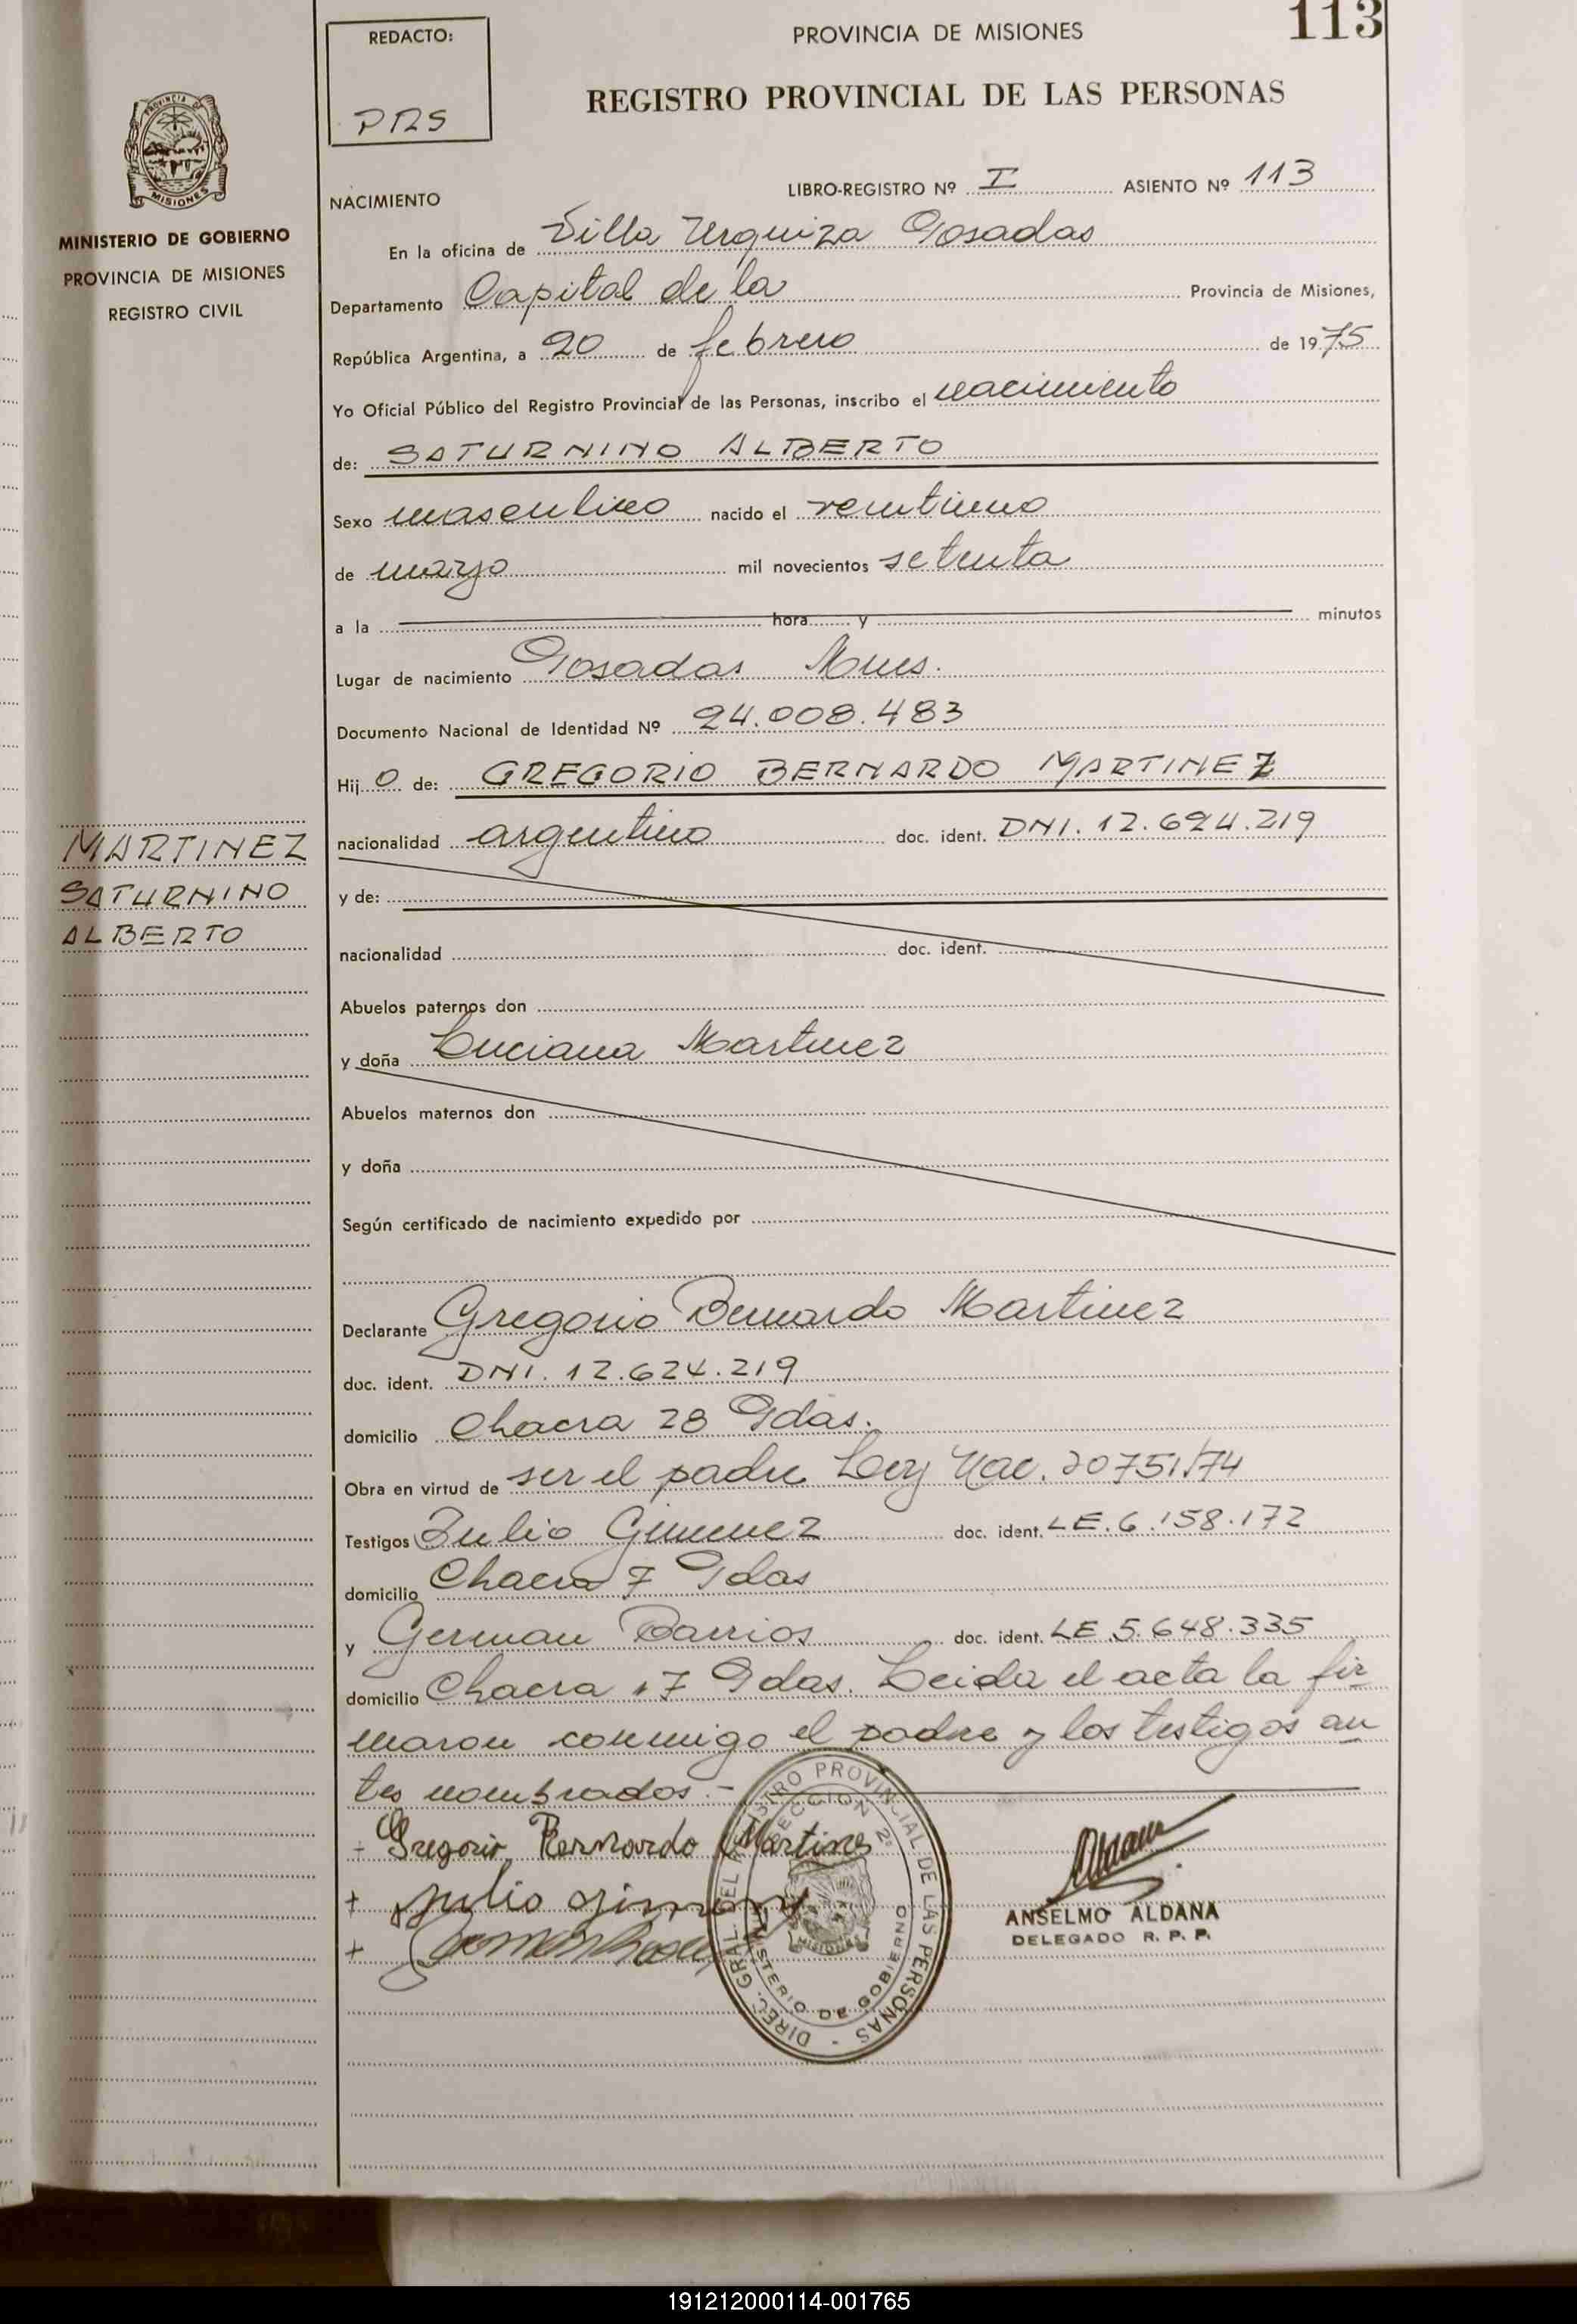 113
REDACTO:
PRS
PROVINCIA DE MISIONES
REGISTRO PROVINCIAL DE LAS PERSONAS
PROVINCIA DE
MISIONES
MINISTERIO DE GOBIERNO
PROVINCIA DE MISIONES
REGISTRO CIVIL
NACIMIENTO
LIBRO-REGISTRO Nº I ASIENTO Nº 113
En la oficina de Villa Urquiza Posadas
Departamento Capital de la Provincia de Misiones,
República Argentina, a 20 de febrero de 1975
Yo Oficial Público del Registro Provincial de las Personas, inscribo el nacimiento
de: SATURNINO ALBERTO
Sexo masculino nacido el veintiuno
de marzo mil novecientos setenta
a la hora y minutos
Lugar de nacimiento Posadas Mnes.
Documento Nacional de Identidad Nº 24.008.483
Hijo de: GREGORIO BERNARDO MARTINEZ
nacionalidad argentino doc. ident. DNI. 12.624.219
MARTINEZ
SATURNINO
ALBERTO
y de:
nacionalidad doc. ident.
Abuelos paternos don
y doña Luciana Martinez
Abuelos maternos don
y doña
Según certificado de nacimiento expedido por
Declarante Gregorio Bernardo Martinez
doc. ident. DNI. 12.624.219
domicilio Chacra 28 Pdas.
Obra en virtud de ser el padre Ley Nac. 20751/74
Testigos Julio Gimenez doc. ident. LE. 6.158.172
domicilio Chacra 7 Pdas
y German Barrios doc. ident. LE 5.648.335
domicilio Chacra 17 Pdas. Leida el acta la fir
maron conmigo el padre y los testigos an
tes nombrados.-
Gregorio Bernardo Martines
+ Julio Gimenez
+
DIREC. GRAL. DEL REGISTRO PROVINCIAL DE LAS PERSONAS -
SECCION 2ª
MISIONES
MINISTERIO DE GOBIERNO
ANSELMO ALDANA
DELEGADO R. P. P.
191212000114-001765